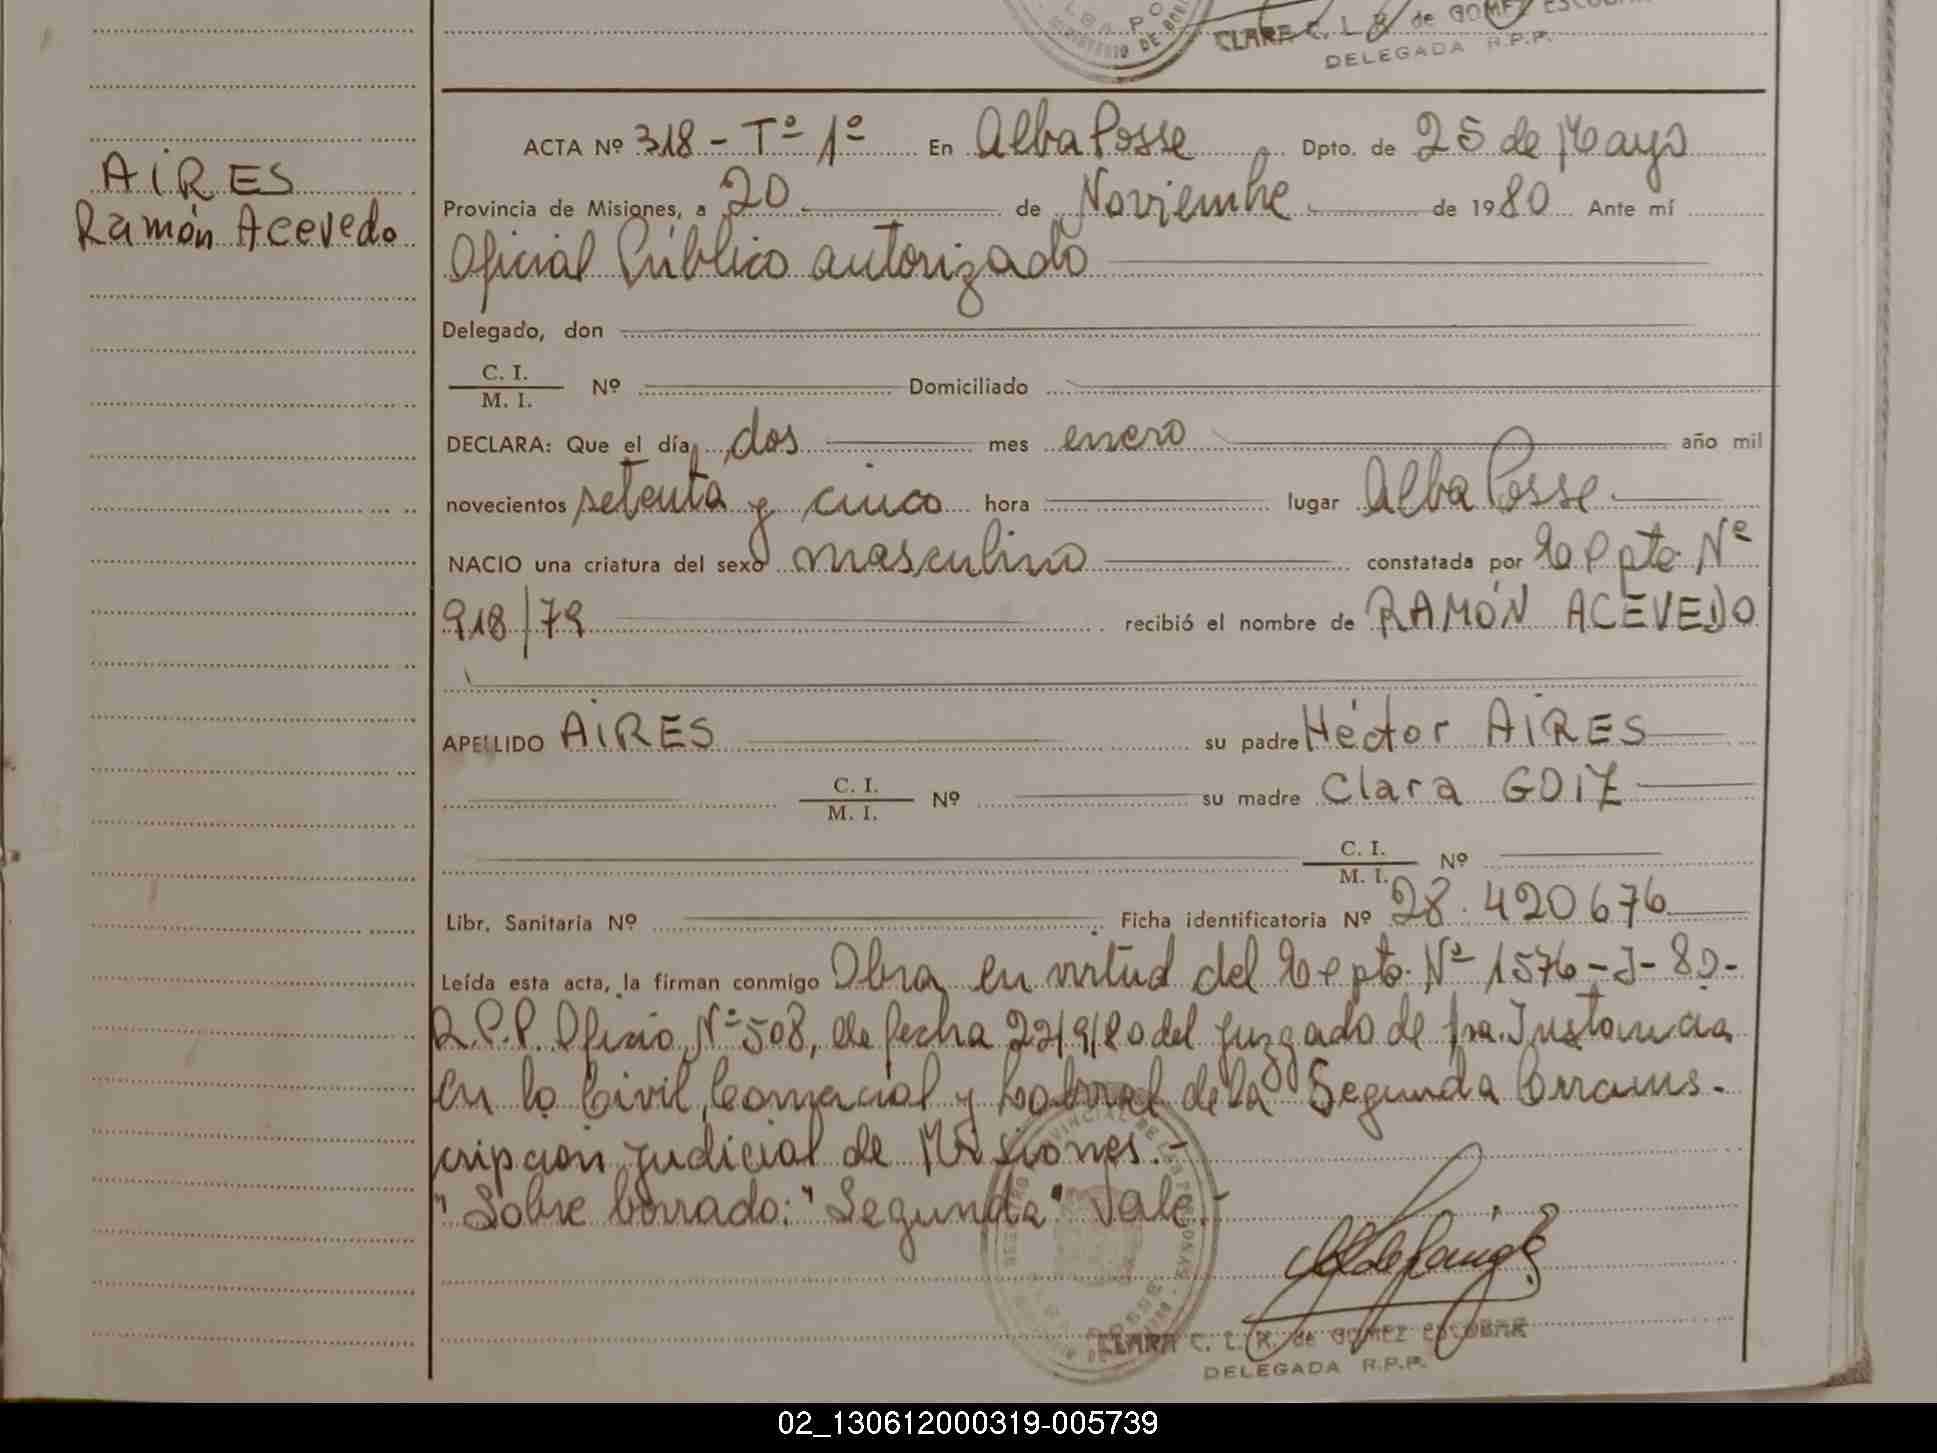 CLARA C. L. R. de GOMEZ ESCOBAR
DELEGADA R.P.P.
AiRES
Ramón Acevedo
ACTA Nº 318 - Tº 1º En Alba Posse Dpto. de 25 de Mayo
Provincia de Misiones, a 20 de Noviembre de 1980 Ante mí
Oficial Público autorizado
Delegado, don
C. I.
M. I. Nº Domiciliado
DECLARA: Que el día dos mes enero año mil
novecientos setenta y cinco hora lugar Alba Posse
NACIO una criatura del sexo masculino constatada por Expte. Nº
918/79 recibió el nombre de RAMÓN ACEVEDO
APELLIDO AiRES su padre Héctor AiRES
C. I.
M. I. Nº su madre Clara GOiZ
C. I.
M. I. Nº
Libr. Sanitaria Nº Ficha identificatoria Nº 28.420676
Leída esta acta, la firman conmigo Obra en virtud del Expte. Nº 1576-J-80-
R.P.P. Oficio Nº 508, de fecha 22/9/80 del Juzgado de 1ra. Instancia
en lo Civil, Comercial y Laboral de la Segunda Circuns-
cripción judicial de Misiones.-
"Sobre borrado: "Segunda" Vale.-
CLARA C. L. R. de GOMEZ ESCOBAR
DELEGADA R.P.P.
02_130612000319-005739